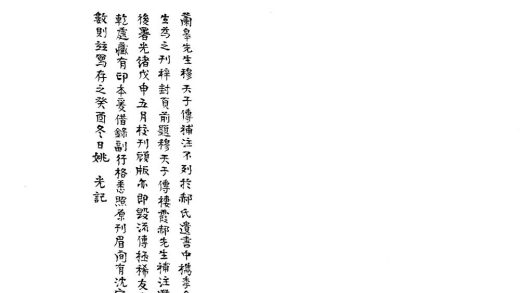 蘭皋先生穆天子傳補注不列於郝氏遺書中檇李
生為之刊梓封頁前題穆天子傳棲霞郝先生補注
後署光緒戊申五月校刊顧版亦即毀流傳極稀友
乾處藏有印本爰借錄副行格悉照原刊眉間有沈
數則竝寫存之癸酉冬日姚 光記